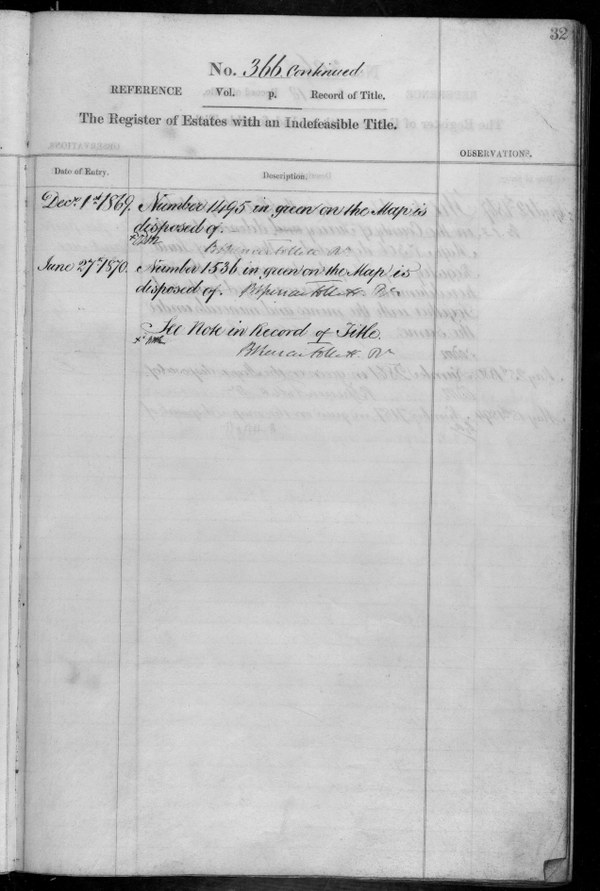 32
No. 366 Continued
REFERENCE Vol. p. Record of Title.
The Register of Estates with an Indefeasible Title.
OBSERVATIONS.
Date of Entry. Description.
Decr. 1st 1869. Number 1495 in green on the Map is
disposed of.
June 27th 1870. Number 1536 in green on the Map is
disposed of.
See Note in Record of Title.